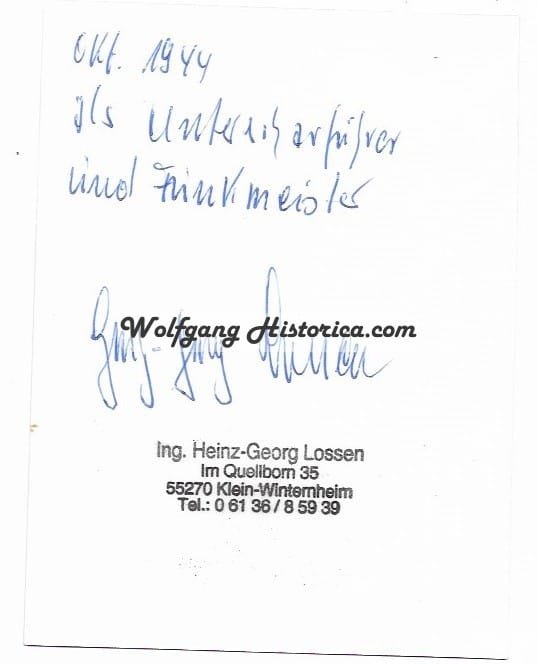 Okt. 1944
als Unterscharführer
und Funkmeister
Wolfgang Historica.com
Ing. Heinz-Georg Lossen
Im Quellborn 35
55270 Klein-Winternheim
Tel.: 0 61 36 / 8 59 39